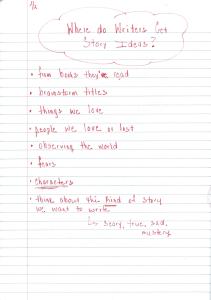 Where do Writers Get
Story Ideas?
• from books they've read
• brainstorm titles
• things we love
• people we love or lost
• observing the world
• fears
• characters
• think about the kind of story
we want to write
↳ scary, true, sad,
mystery